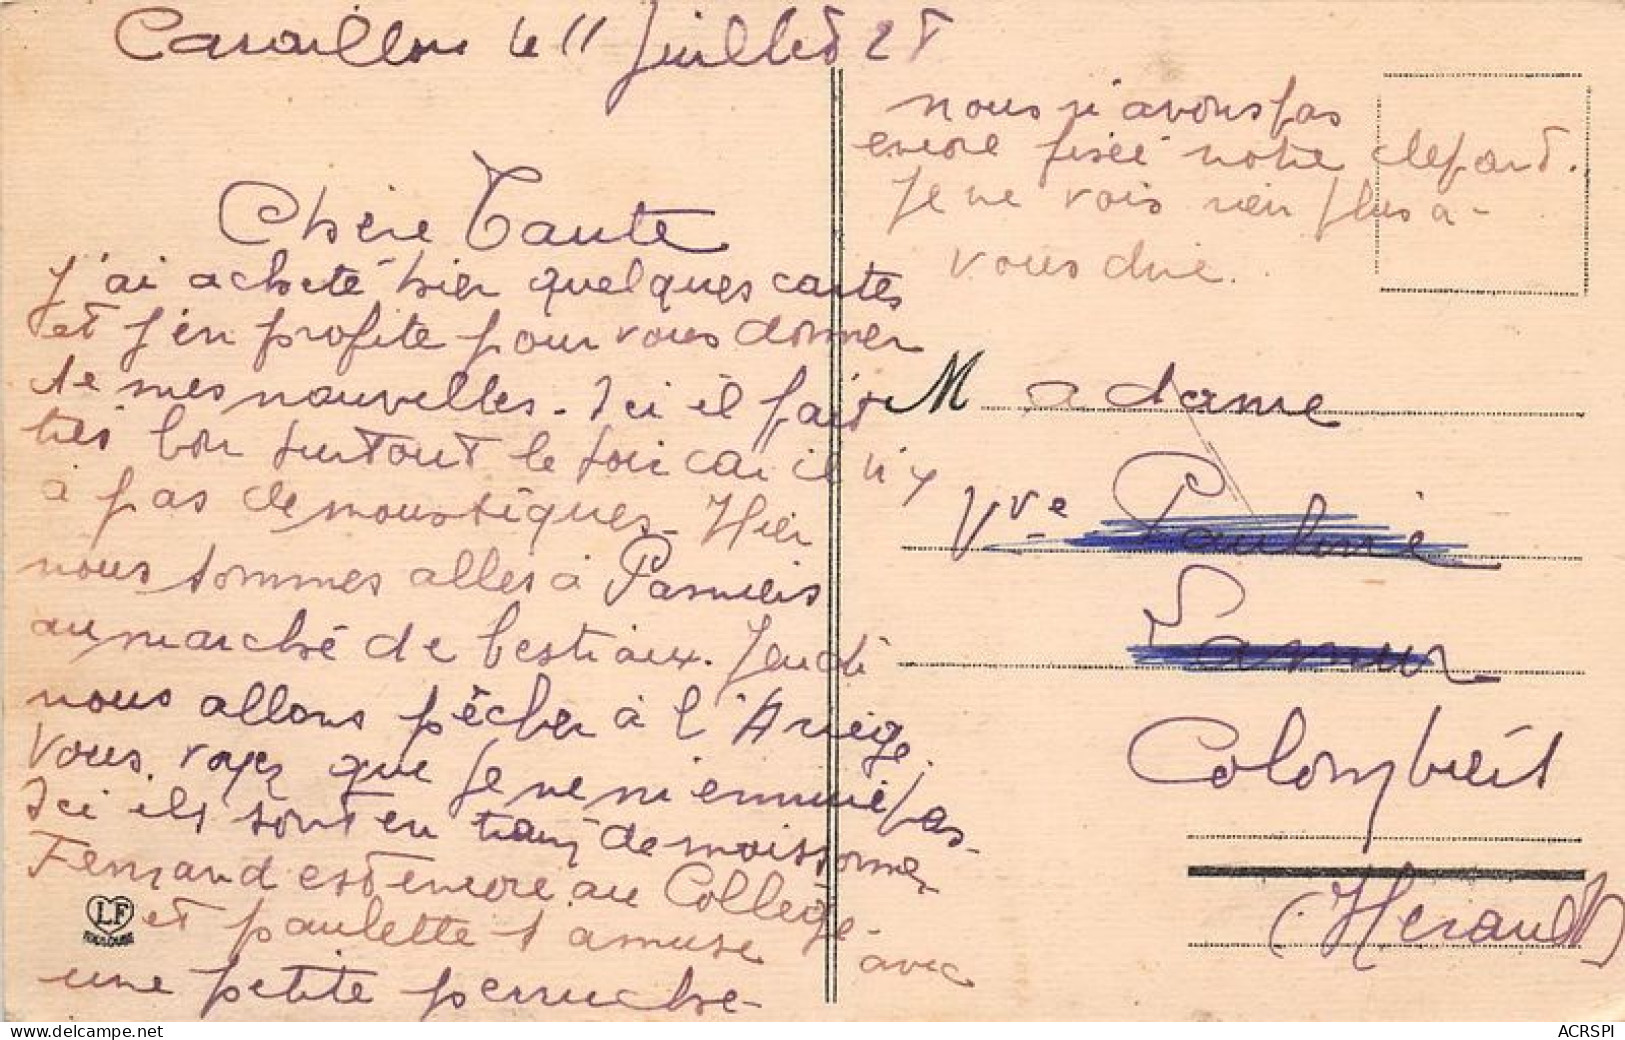 le 11 Juillet 28
Chère Tante
J'ai acheté hier quelques cartes
et j'en profite pour vous donner
de mes nouvelles. Ici il fait
très bon surtout le soir car il n'y
à pas de moustiques. Hier
nous sommes allés à Pamiers
au marché de bestiaux. Jeudi
nous allons pêcher à l'Ariège.
Vous voyez que je ne m'ennuie pas.
Ici ils sont en train de moissonner
Fernand est encore au Collège.
et paulette s'amuse avec
une petite perruche.
LF
TOULOUSE
nous n'avons pas
encore fixée notre depart.
Je ne vois rien plus a
vous dire.
Madame
Vve Pauline
Colombiers
(Herault)
delcampe.net
ACRSPI